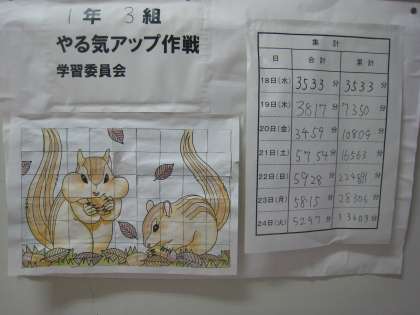 1年 3組
やる気アップ作戦
学習委員会
集計
日 合計 累計
18日(水) 3533分 3533分
19日(木) 3817分 7350分
20日(金) 3459分 10809分
21日(土) 5754分 16563分
22日(日) 5928分 22491分
23日(月) 5815分 28306分
24日(火) 5297分 分